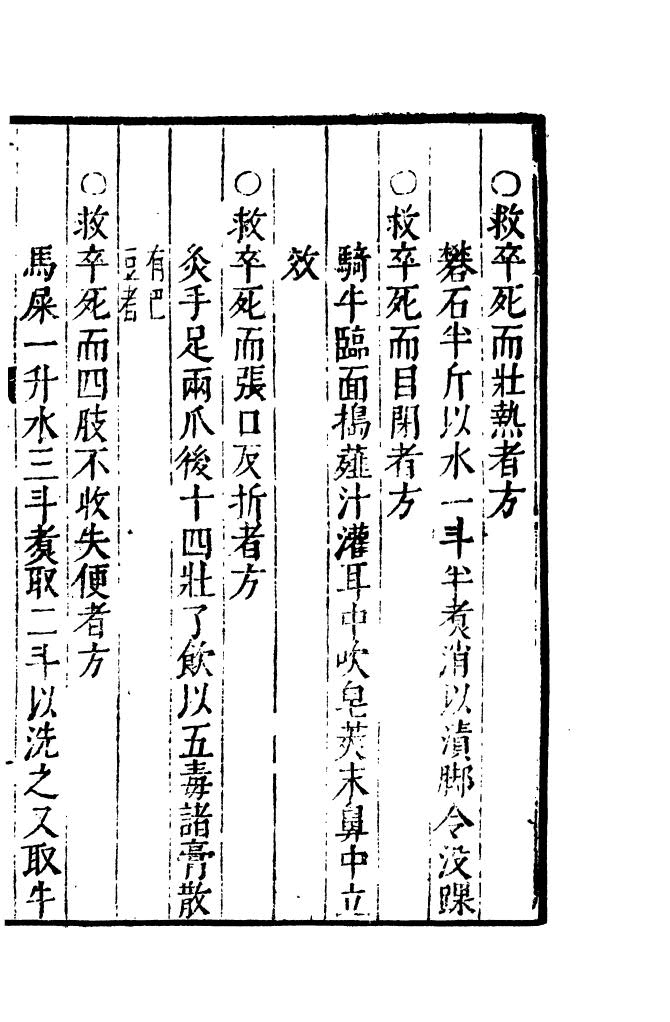 ○救卒死而壯熱者方
礬石半斤以水一斗半煮消以漬脚令没踝
○救卒死而目閉者方
騎牛臨面搗薤汁灌耳中吹皂莢末鼻中立
效
○救卒死而張口反折者方
灸手足兩爪後十四壯了飲以五毒諸膏散
有巴
豆者
○救卒死而四肢不收失便者方
馬屎一升水三斗煮取二斗以洗之又取牛